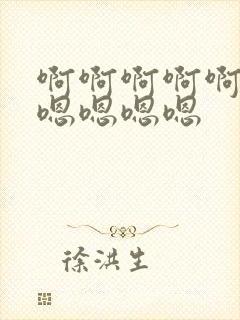 啊啊啊啊啊
嗯嗯嗯嗯
徐洪生